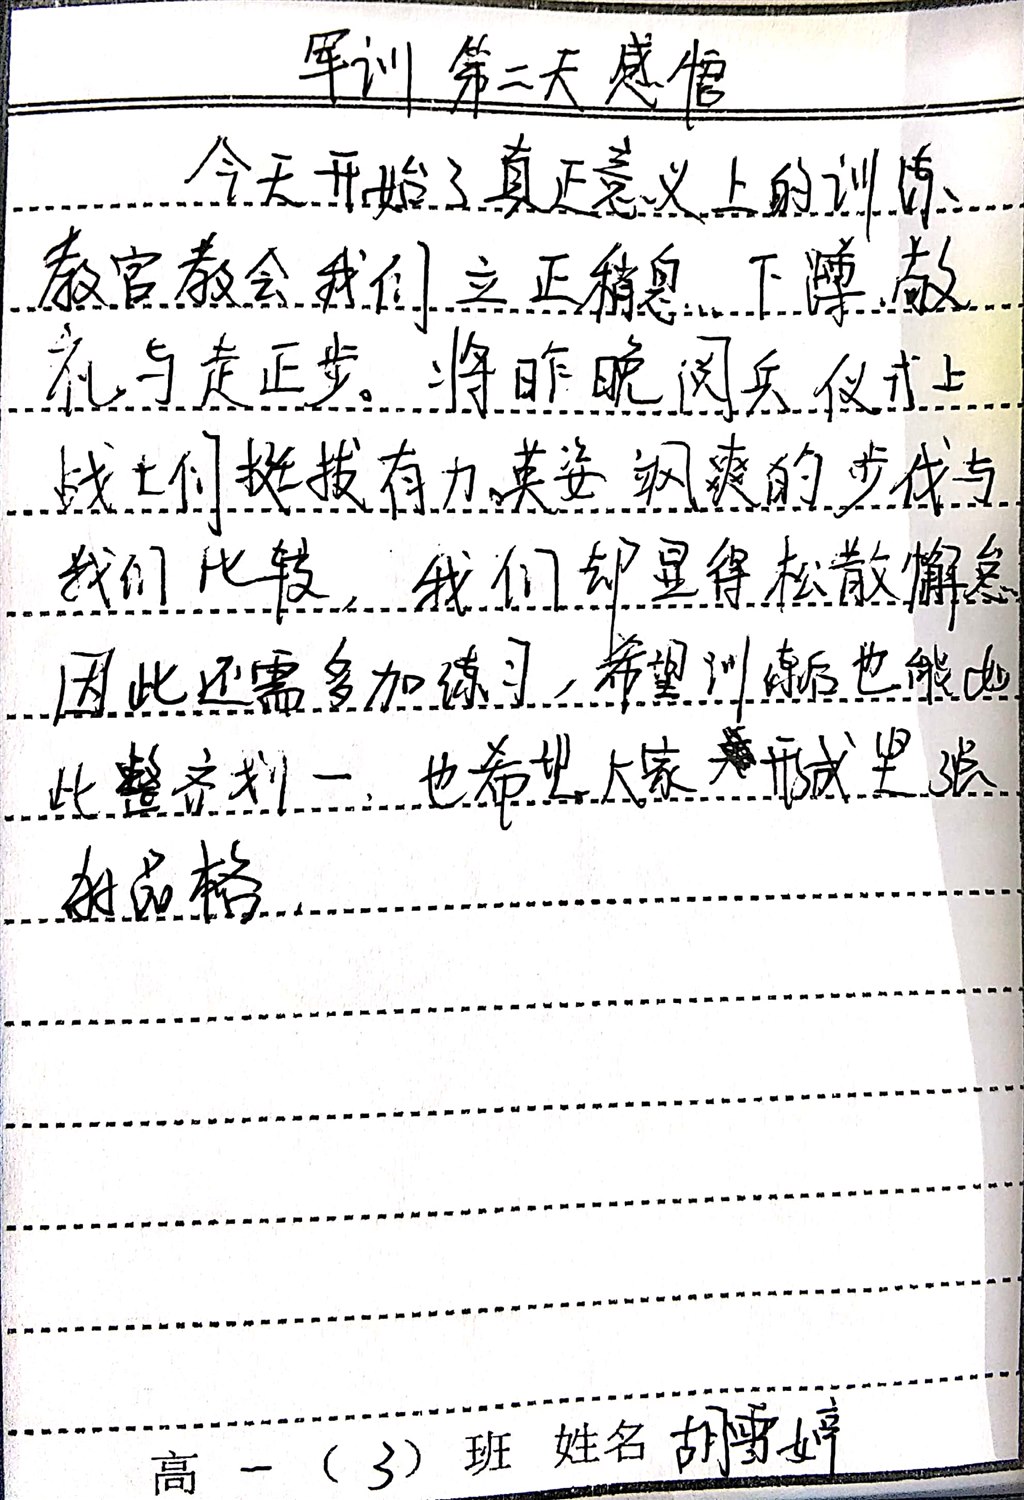 军训第二天感悟
今天开始了真正意义上的训练、
教官教会我们立正稍息、下蹲、敬
礼与走正步。将昨晚阅兵仪式上
战士们挺拔有力、英姿飒爽的步伐与
我们比较，我们却显得松散懈怠
因此还需多加练习，希望训练后也能如
此整齐划一，也希望大家形成坚强
的品格.
高一（3）班 姓名胡雪婷